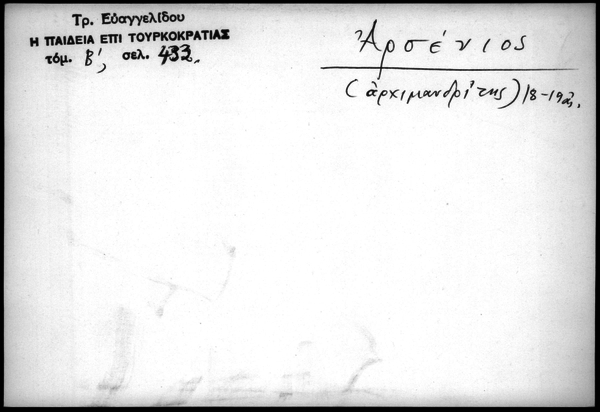 Τρ. Εὐαγγελίδου
Η ΠΑΙΔΕΙΑ ΕΠΙ ΤΟΥΡΚΟΚΡΑΤΙΑΣ
τόμ. Β', σελ. 433.
Ἀρσένιος
(ἀρχιμανδρίτης) 18-19